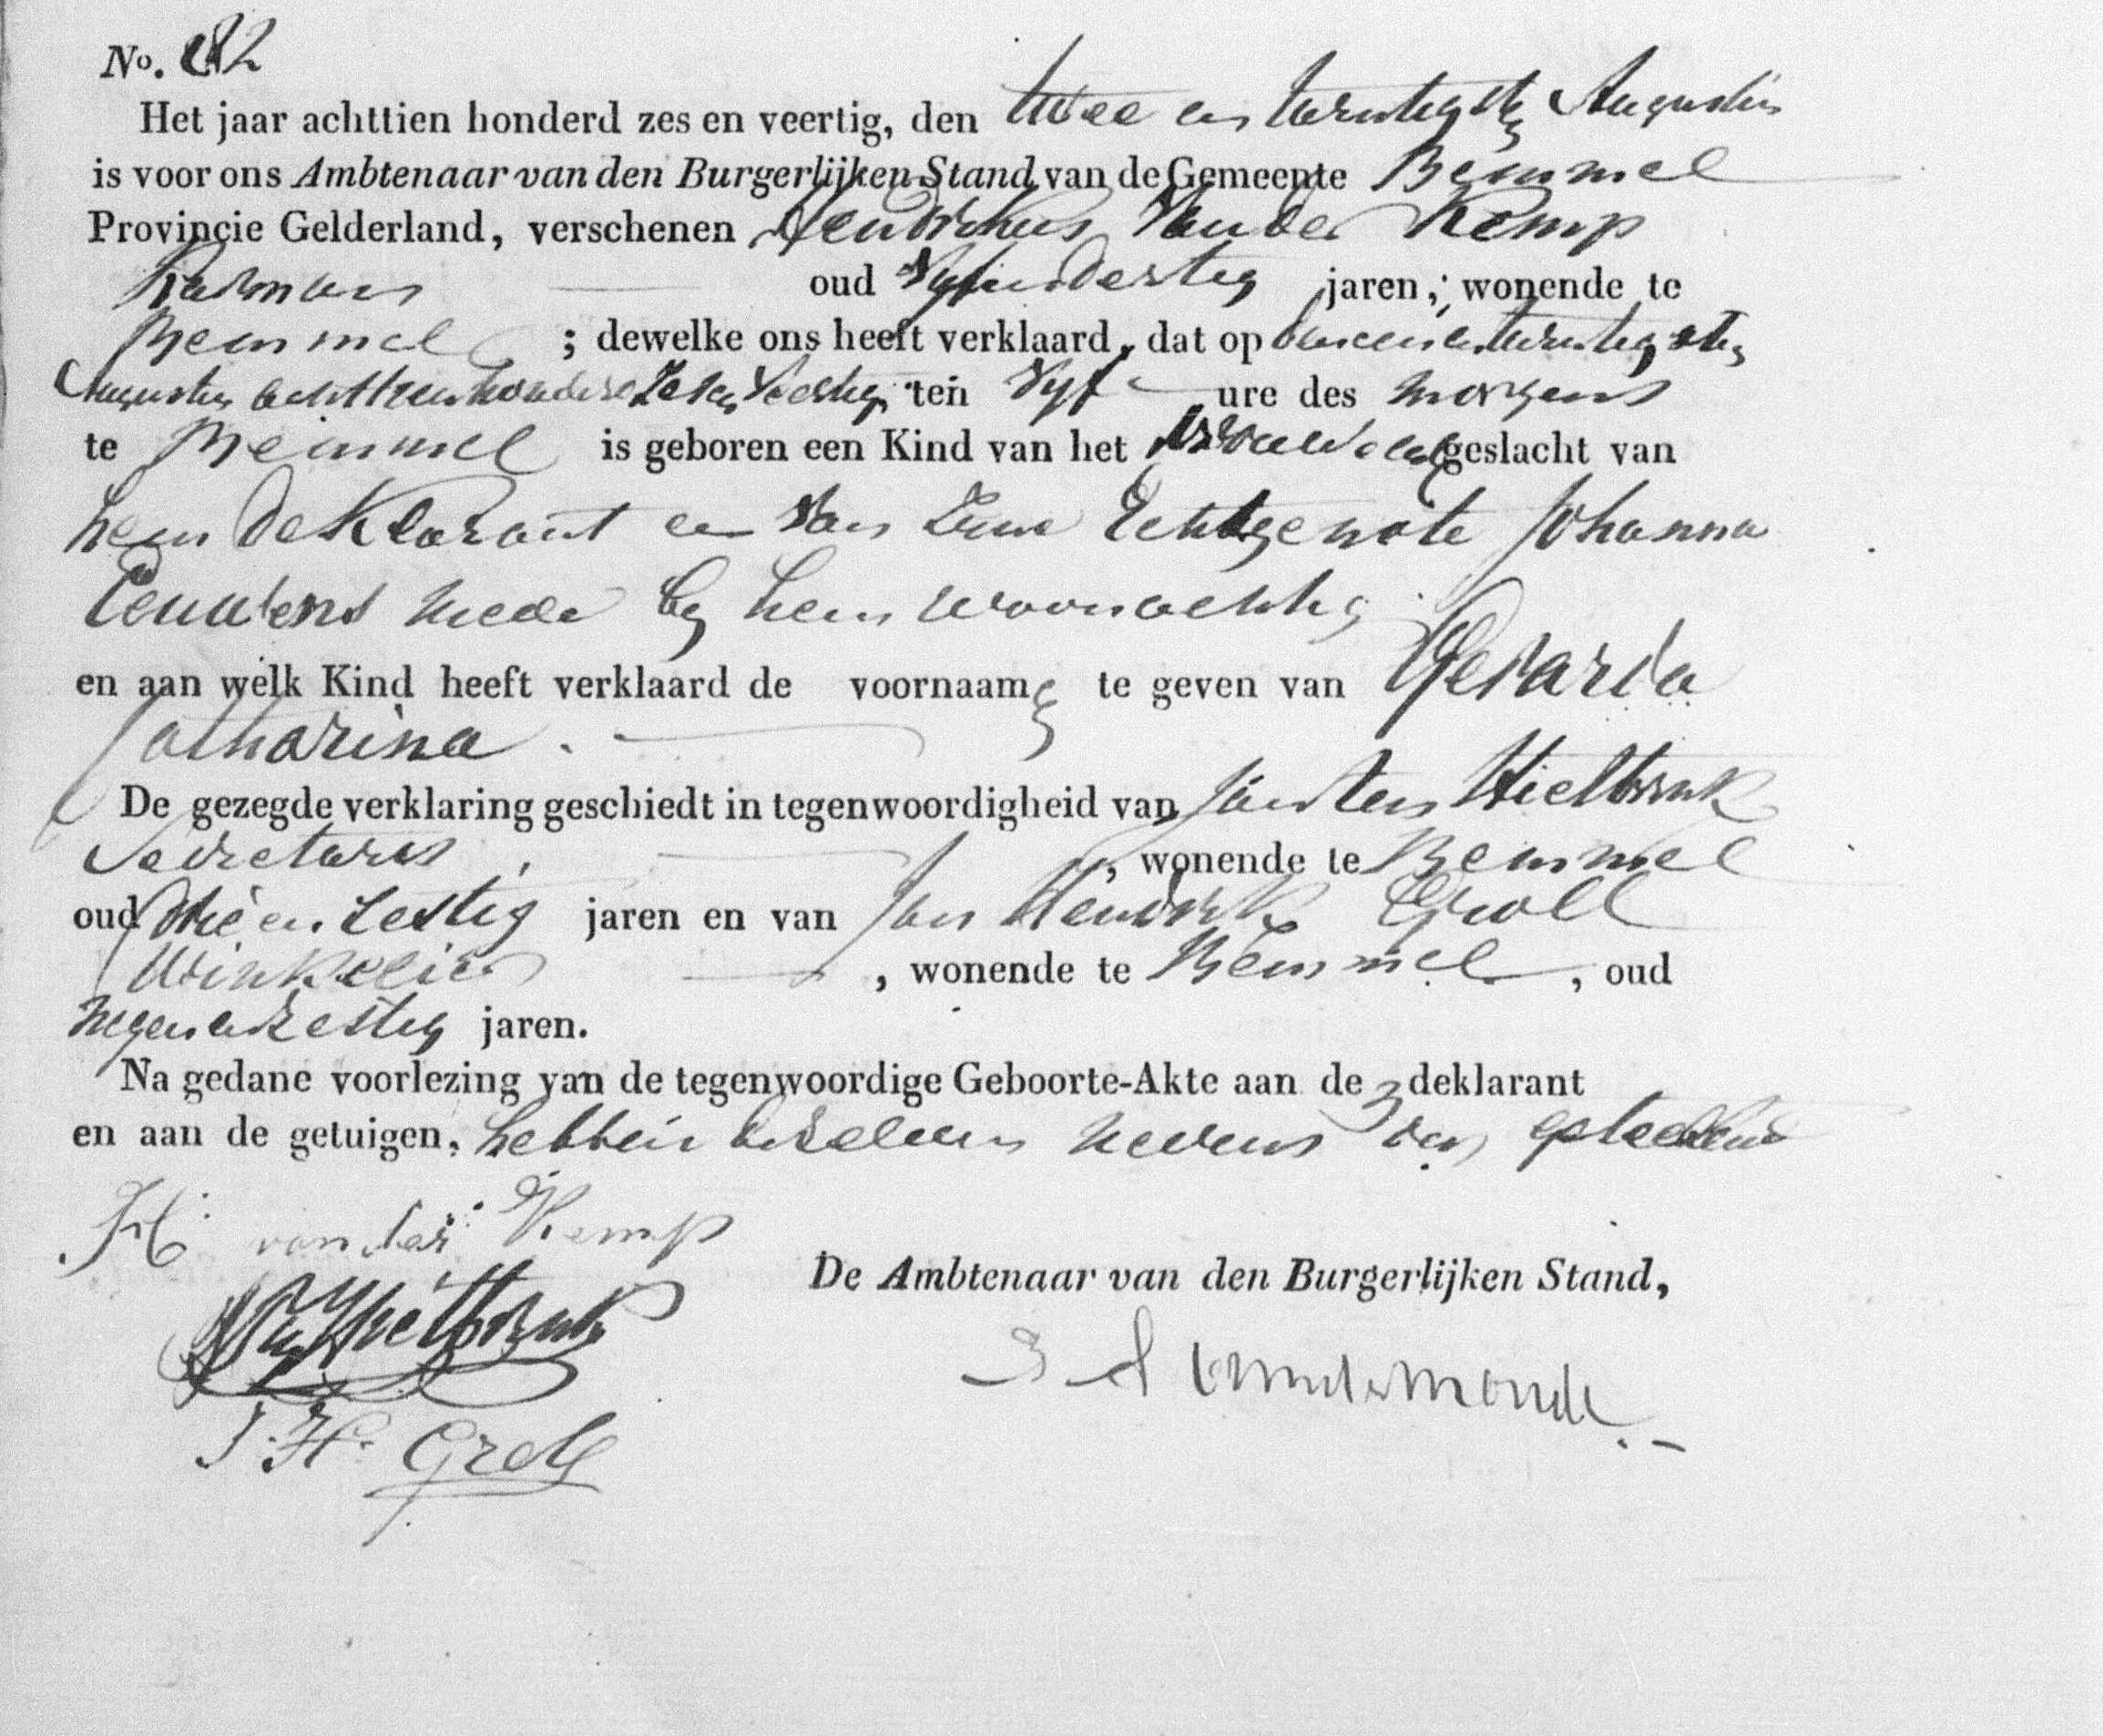 No. 82
Het jaar achttien honderd zes en veertig, den twee en twintigste Augustus
is voor ons Ambtenaar van den Burgerlijken Stand van de Gemeente Bemmel
Provincie Gelderland, verschenen Hendrikus van der Kemp
oud vyfendertig jaren, wonende te
Bemmel ; dewelke ons heeft verklaard, dat op den eenentwintigsten
Augustus achttienhonderd zesenveertig ten vyf ure des morgens
te Bemmel is geboren een Kind van het vrouwelyk geslacht van
hem deklarant en van zyne Echtgenote Johanna
mede by hem woonachtig
en aan welk Kind heeft verklaard de voornaam te geven van Gerarda
Catharina.
De gezegde verklaring geschiedt in tegenwoordigheid van Jan ten Hietbrink
Secretaris, wonende te Bemmel
oud drie en zestig jaren en van Jan Hendrik Groll
Winkelier, wonende te Bemmel, oud
negenenzestig jaren.
Na gedane voorlezing van de tegenwoordige Geboorte-Akte aan de deklarant
en aan de getuigen, hebben dezelven nevens ons geteekend
H. van der Kemp
De Ambtenaar van den Burgerlijken Stand,
J. H. Groll